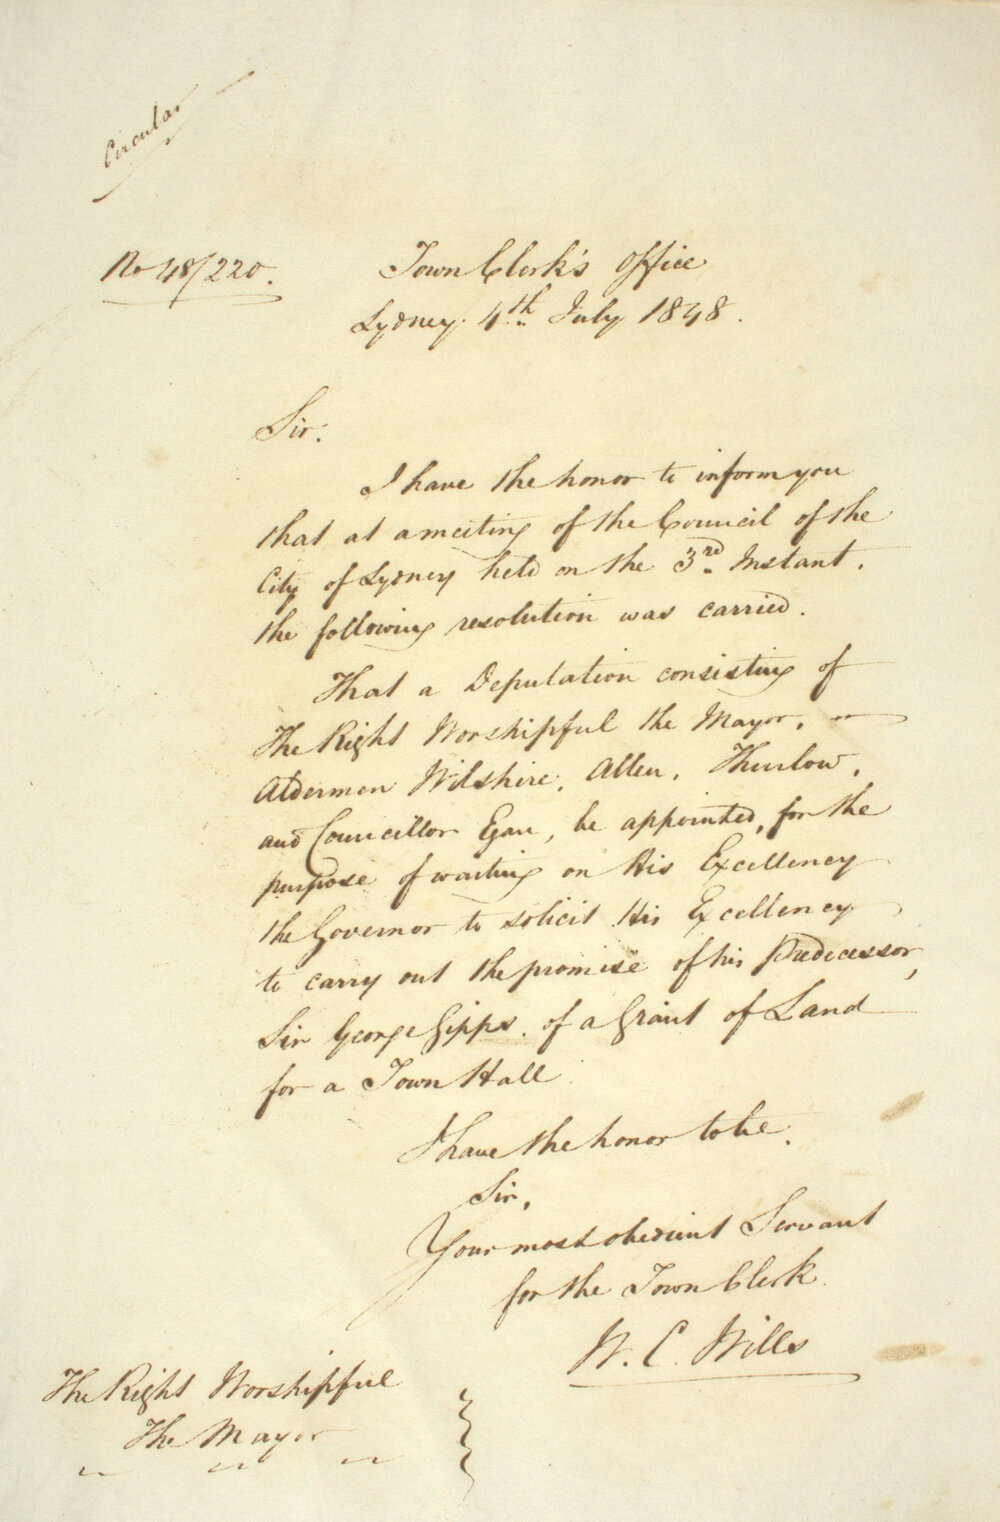 Circular
No 48/220.
Town Clerk's Office
Sydney. 4th July 1848.
Sir.
I have the honor to inform you
that at a meeting of the Council of the
City of Sydney held on the 3rd Instant.
the following resolution was carried.
That a Deputation consisting of
The Right Worshipful the Mayor.
Aldermen Wilshire, Allen, Thurlow,
and Councillor Egan, be appointed, for the
purpose of waiting on His Excellency
the Governor to solicit His Excellency
to carry out the promise of his Predecessor,
Sir George Gipps. of a Grant of Land
for a Town Hall
I have the honor to be.
Sir,
Your most obedient Servant
for the Town Clerk.
W. C. Wills
The Right Worshipful
The Mayor